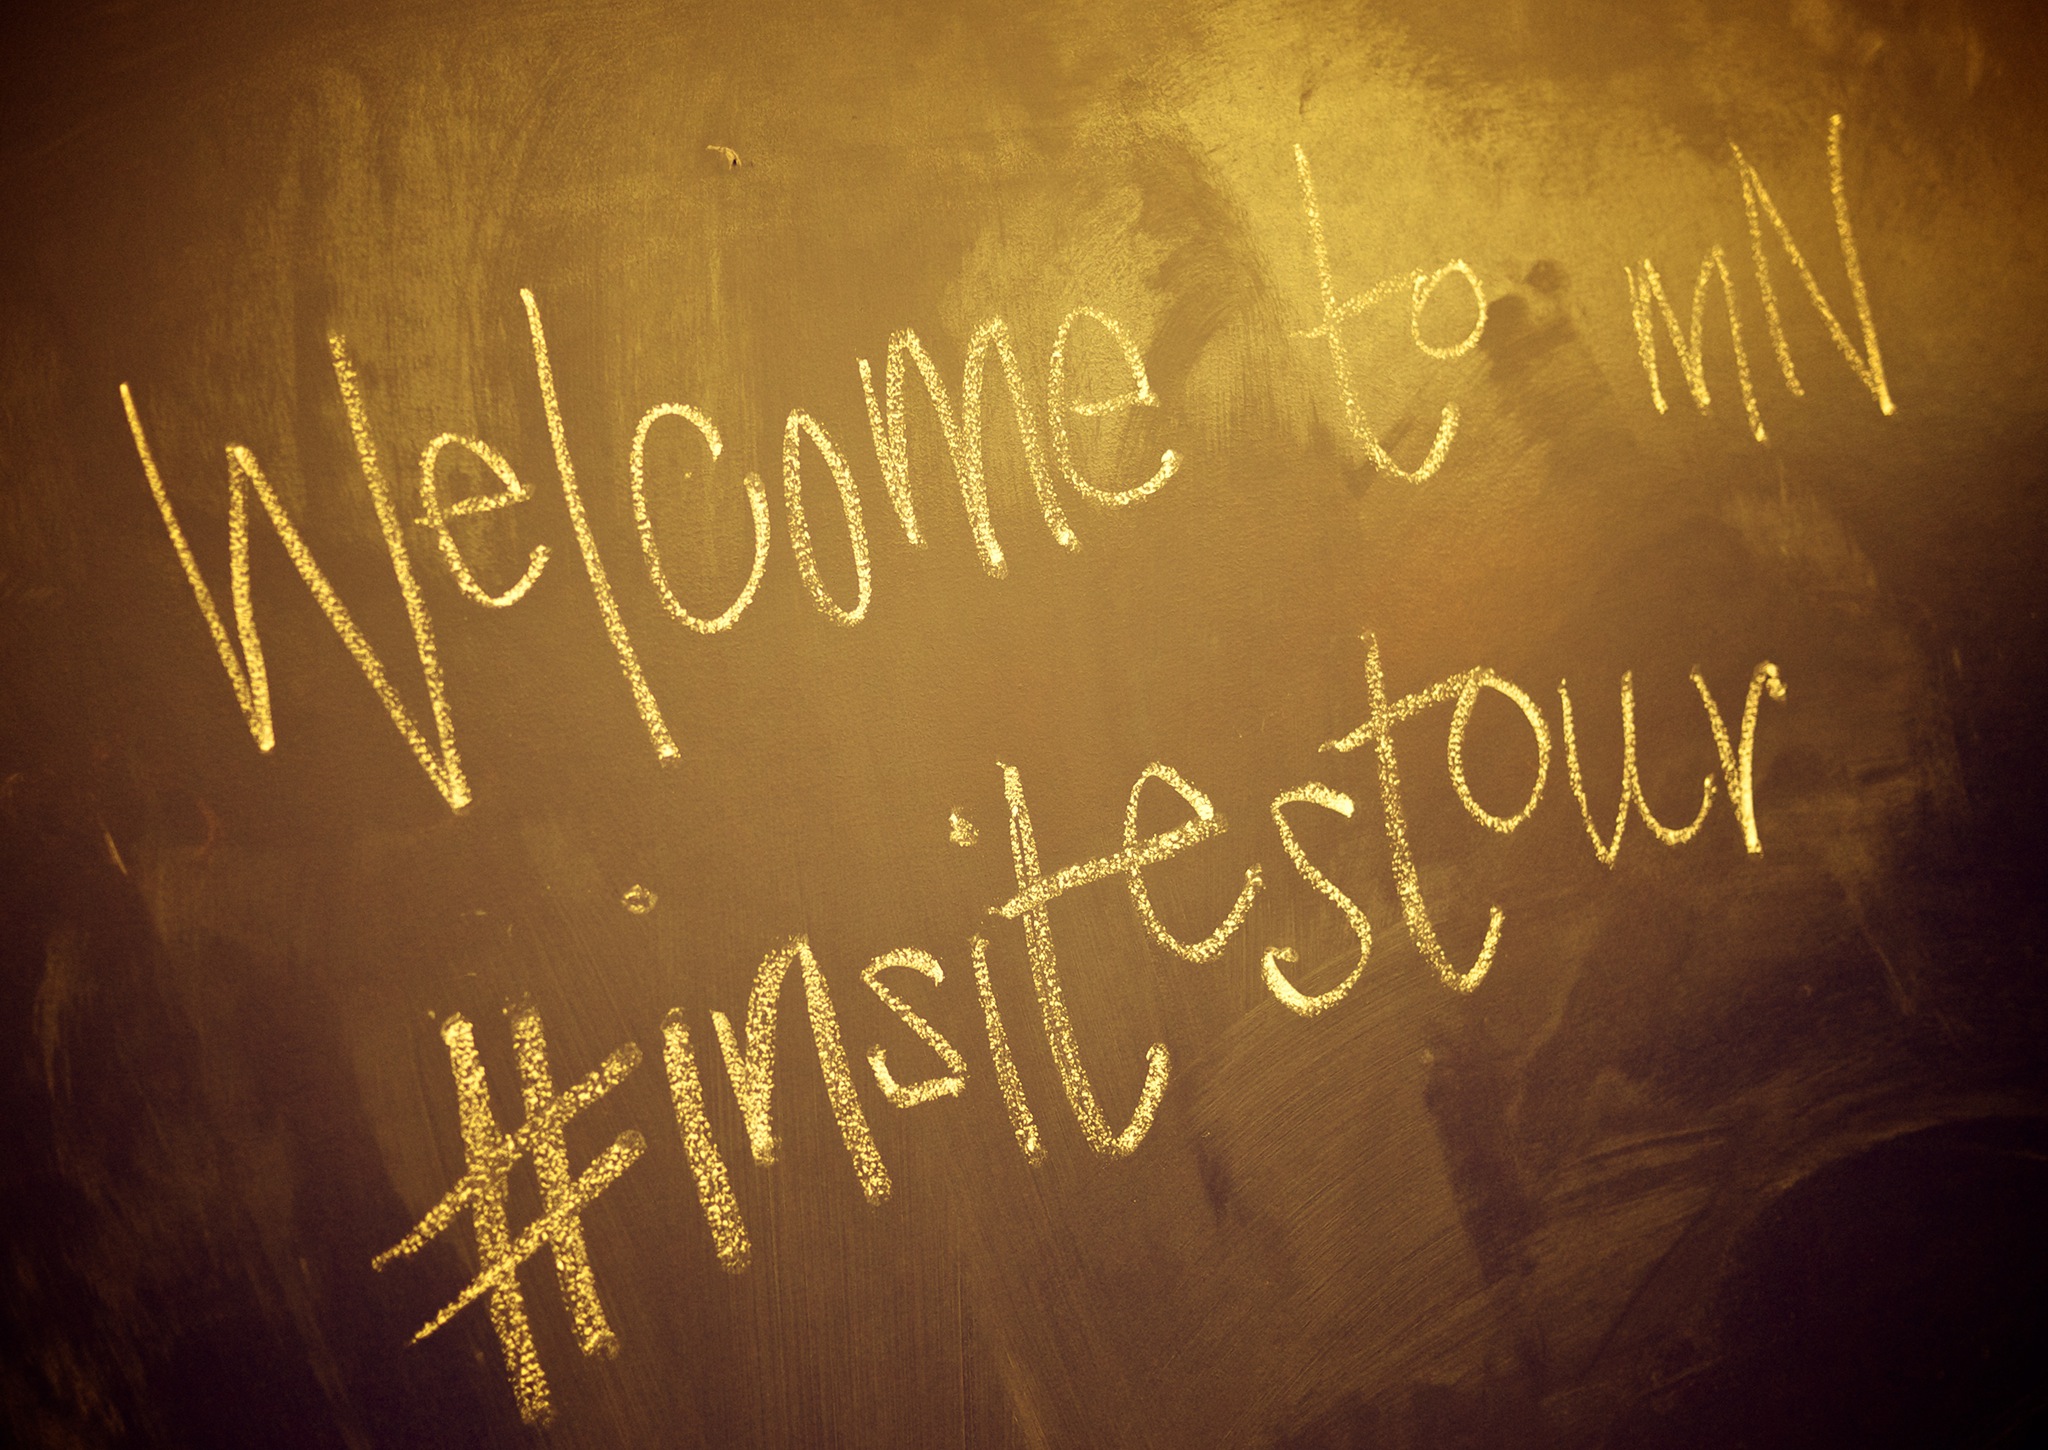 Welcome to mN
#insitestour